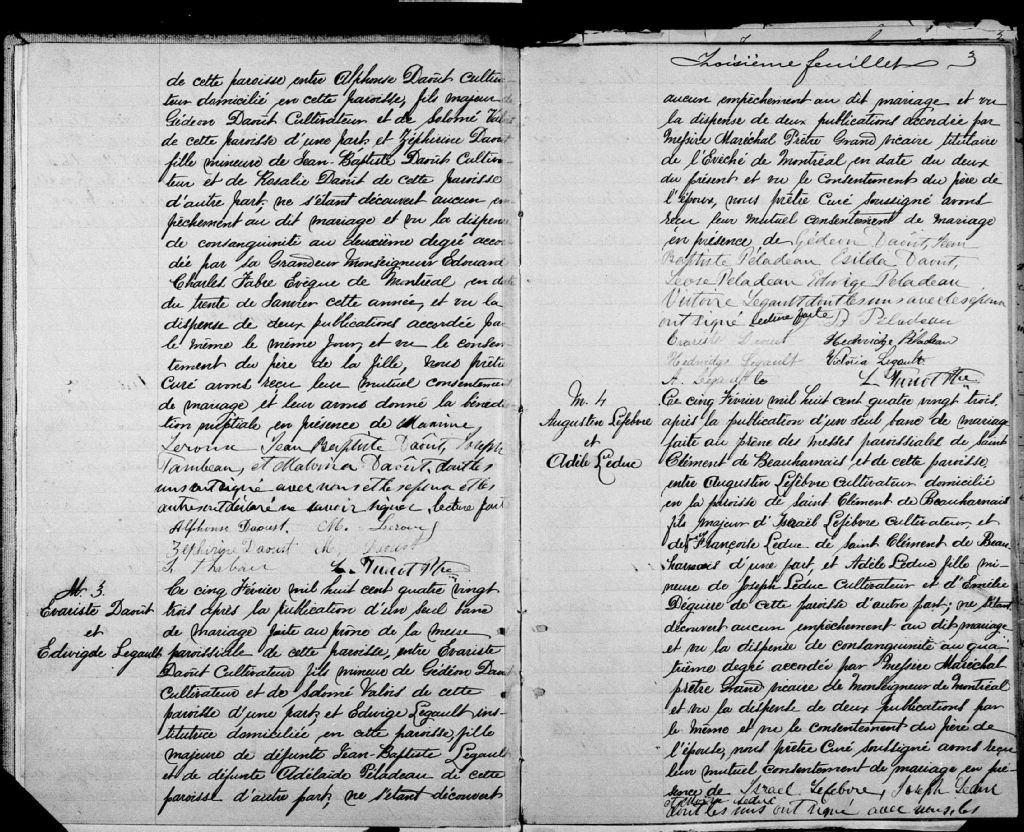 de cette paroisse entre Alphonse Daoût Cultiva-
teur domicilié en cette paroisse, fils majeur de
Gédéon Daoût Cultivateur et de Solomé Valois
de cette paroisse d'une part, et Zéphirine Daoût
fille mineure de Jean-Baptiste Daoût Cultiva-
teur et de Rosalie Daoût de cette paroisse
d'autre part, ne s'étant découvert aucun em-
pêchement au dit mariage et vu la dispense
de consanguinité au deuxième degré accor-
dée par sa Grandeur Monseigneur Edouard
Charles Fabre Evêque de Montréal en date
du trente de Janvier cette année, et vu la
dispense de deux publications accordée par
le même le même jour, et vu le consen-
tement du père de la fille, nous prêtre
Curé avons reçu leur mutuel consentement
de mariage et leur avons donné la bénédic-
tion nuptiale en présence de Maxime
Jean Baptiste Daoût, Joseph
et Malvina Daoût, dont les
uns ont signé avec nous et les
autres ont déclaré ne savoir signer, lecture faite
Alphonse Daoust. M.
Zéphirine Daoust M. Daoust
Ptre
M. 3.
Evariste Daoût
et
Edwigde Legault
Ce cinq Février mil huit cent quatre vingt
trois après la publication d'un seul banc
de mariage faite au prône de la messe
paroissiale de cette paroisse, entre Evariste
Daoût Cultivateur fils mineur de Gédéon Daoût
Cultivateur et de Solomé Valois de cette
paroisse d'une part, et Edwige Legault ins-
titutrice domiciliée en cette paroisse, fille
majeure de défunte Jean-Baptiste Legault
et de défunte Adélaide Péladeau de cette
paroisse d'autre part, ne s'étant découvert
Troisième feuillet 3
aucun empêchement au dit mariage et vu
la dispense de deux publications accordée par
Messire Maréchal Prêtre Grand vicaire titulaire
de l'Evêché de Montréal en date du deux
du présent et vu le consentement du père de
l'époux, nous prêtre Curé soussigné avons
reçu leur mutuel consentement de mariage
en présence de Gédéon Daoût, Jean
Baptiste Péladeau Exilda Daout,
Péladeau Edwige Péladeau
Victoire Legault dont les uns avec les époux
ont signé lecture faite Péladeau
Evariste Daoust Hedwidge Péladeau
Hedwidge Legault Victoria Legault
A. Legault Ptre
M. 4
Augustin Lefebvre
et
Adèle Leduc
Ce cinq Février mil huit cent quatre vingt trois,
après la publication d'un seul banc de mariage
faite au prône des messes paroissiales de saint
Clément de Beauharnais et de cette paroisse,
entre Augustin Lefebvre Cultivateur domicilié
en la paroisse de saint Clément de Beauharnais
fils majeur d'Israël Lefebvre Cultivateur et
de Françoise Leduc de Saint Clément de Beau
harnais d'une part et Adèle Leduc fille mi-
neure de Joseph Leduc Cultivateur et d'Emélie
Deguire de cette paroisse d'autre part; ne s'étant
découvert aucun empêchement au dit mariage
et vu la dispense de consanguinité au qua-
trième degré accordée par Messire Maréchal
prêtre Grand vicaire de Monseigneur de Montréal
et vu la dispense de deux publications par
le même et vu le consentement du père de
l'épouse, nous prêtre Curé soussigné avons reçu
leur mutuel consentement de mariage en pré-
sence de Israel Lefebvre, Joseph
Leduc
dont les uns ont signé avec nous, les